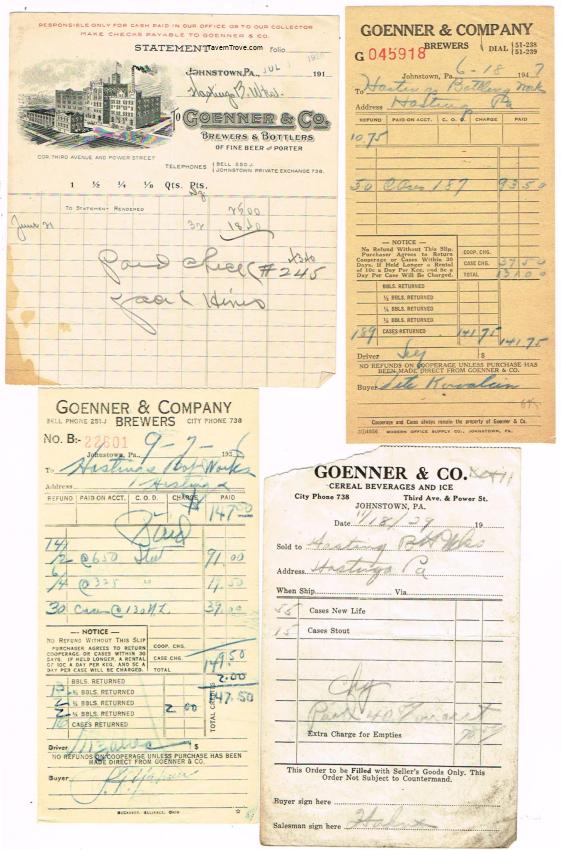 RESPONSIBLE ONLY FOR CASH PAID IN OUR OFFICE OR TO OUR COLLECTOR
MAKE CHECKS PAYABLE TO GOENNER & CO.
STATEMENT
TavernTrove.com
Folio
JOHNSTOWN, PA., JUL 191
Hasting
TO GOENNER & CO.
BREWERS & BOTTLERS
OF FINE BEER AND PORTER
COR. THIRD AVENUE AND POWER STREET
TELEPHONES BELL 250 J.
JOHNSTOWN PRIVATE EXCHANGE 738.
1 ½ ¼ ⅛ Qts. Pts.
TO STATEMENT RENDERED
June 21
Paid check #245
GOENNER & COMPANY
BREWERS
DIAL 51-238
51-239
G 045918
Johnstown, Pa., 6-18 1947
To Hastings Bottling Work
Address Hasting Pa
REFUND PAID ON ACCT. C. O. D. CHARGE PAID
10 75
50 Cases 187 93 50
— NOTICE —
No Refund Without This Slip.
Purchaser Agrees to Return
Cooperage or Cases Within 30
Days. If Held Longer a Rental
of 10c a Day Per Keg, and 5c a
Day Per Case Will Be Charged.
COOP. CHG.
CASE CHG. 37 50
TOTAL 131 00
BBLS. RETURNED
½ BBLS. RETURNED
¼ BBLS. RETURNED
189 CASES RETURNED 141 75
141 75
Driver $
NO REFUNDS ON COOPERAGE UNLESS PURCHASE HAS
BEEN MADE DIRECT FROM GOENNER & CO.
Buyer Pete
Cooperage and Cases always remain the property of Goenner & Co.
MODERN OFFICE SUPPLY CO., JOHNSTOWN, PA.
GOENNER & COMPANY
BELL PHONE 251-J BREWERS CITY PHONE 738
NO. B- 22601
Johnstown, Pa., 9-7- 193
To Hastings Bot Works
Address Hastings
REFUND PAID ON ACCT. C. O. D. CHARGE PAID
147 50
Paid
12 @ 650 91.00
@ 325 " 19.50
30 Cases @ 130 39.00
— NOTICE —
NO REFUND WITHOUT THIS SLIP
PURCHASER AGREES TO RETURN
COOPERAGE OR CASES WITHIN 30
DAYS. IF HELD LONGER, A RENTAL
OF 10C A DAY PER KEG, AND 5C A
DAY PER CASE WILL BE CHARGED.
COOP. CHG.
CASE CHG.
TOTAL 149.50
2.00
147.50
BBLS. RETURNED
½ BBLS. RETURNED
¼ BBLS. RETURNED 2 00
CASES RETURNED
TOTAL CREDITS
Driver $
NO REFUNDS ON COOPERAGE UNLESS PURCHASE HAS BEEN
MADE DIRECT FROM GOENNER & CO.
Buyer
GOENNER & CO.
CEREAL BEVERAGES AND ICE
City Phone 738 Third Ave. & Power St.
JOHNSTOWN, PA.
Date 11/18/29 19
Sold to Hasting Bot Wks
Address Hastings Pa
When Ship Via
55 Cases New Life
15 Cases Stout
Extra Charge for Empties
This Order to be Filled with Seller's Goods Only. This
Order Not Subject to Countermand.
Buyer sign here
Salesman sign here